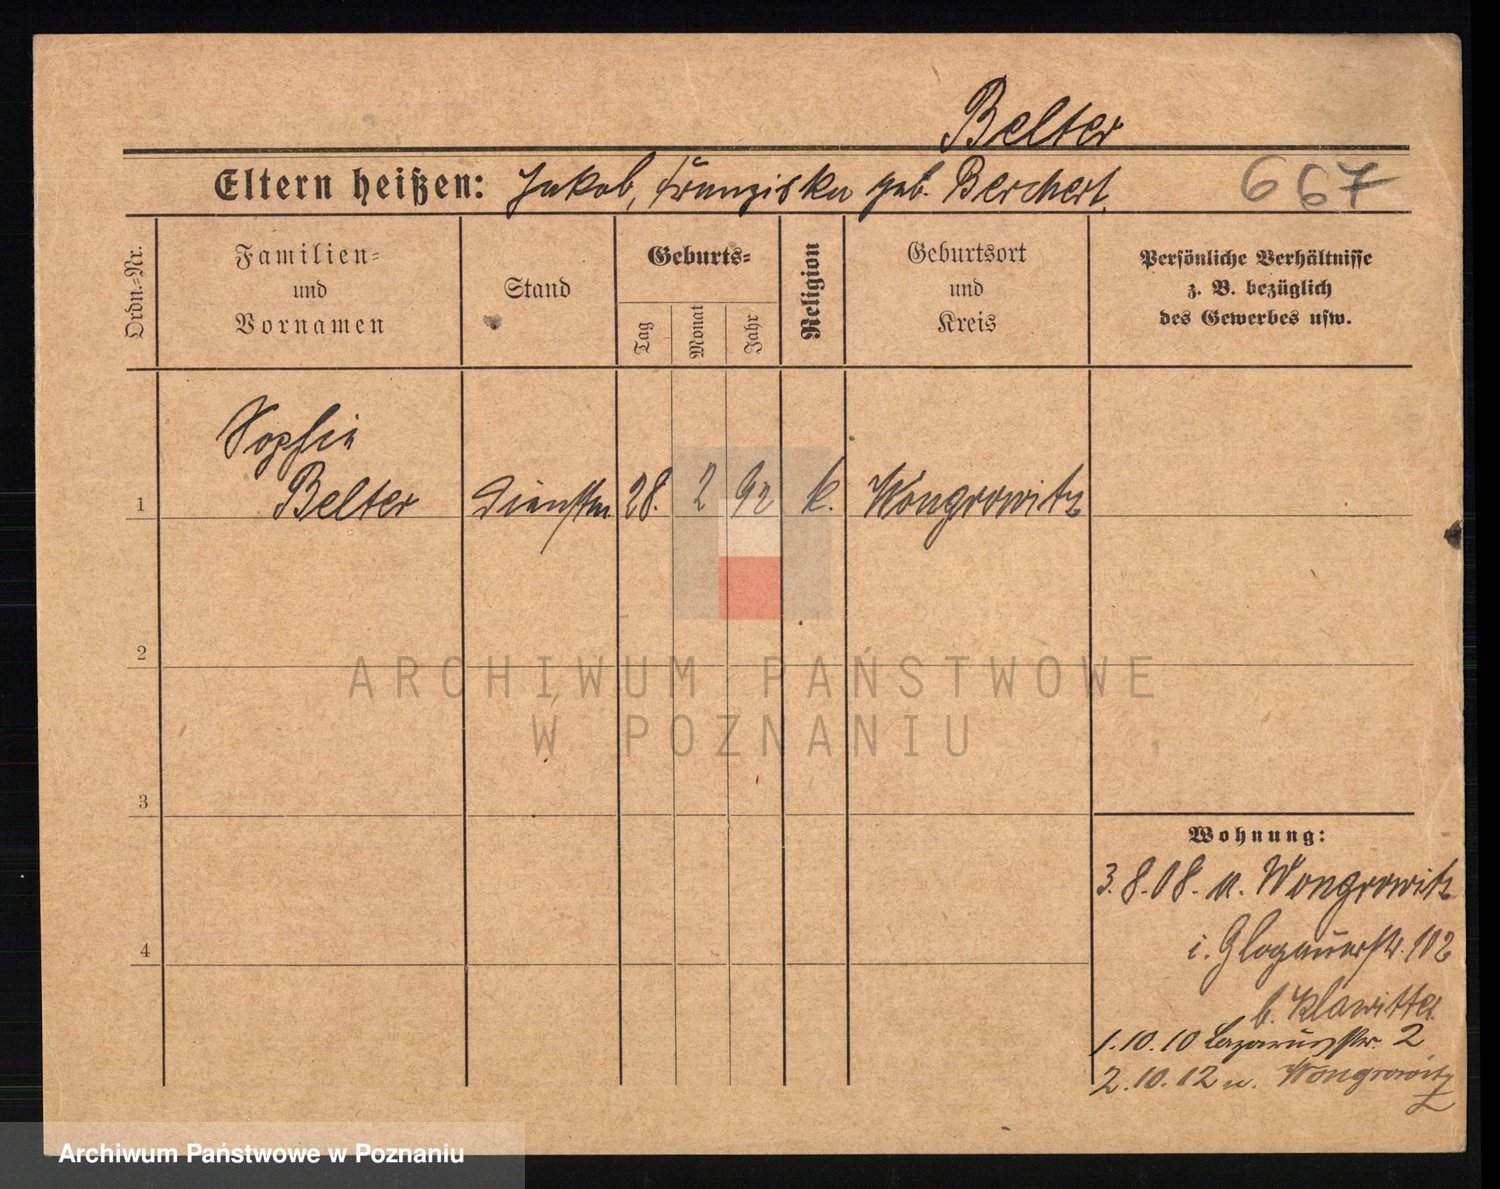 Belter
Eltern heißen: Jakob, Franziska geb. Berchert.
667
Ordn.-Nr.
Familien- und Vornamen
Stand
Geburts-
Tag
Monat
Jahr
Religion
Geburtsort und Kreis
Persönliche Verhältnisse
z. B. bezüglich
des Gewerbes usw.
Sophie
1 Belter Dienstm. 28. 2 92 k. Wongrowitz
2
ARCHIWUM PAŃSTWOWE
W POZNANIU
3
Wohnung:
3.8.08. n. Wongrowitz
4
i. Glogauerstr. 102
b. Klawitter
1.10.10 Lazarusstr. 2
2.10.12 n. Wongrowitz
Archiwum Państwowe w Poznaniu